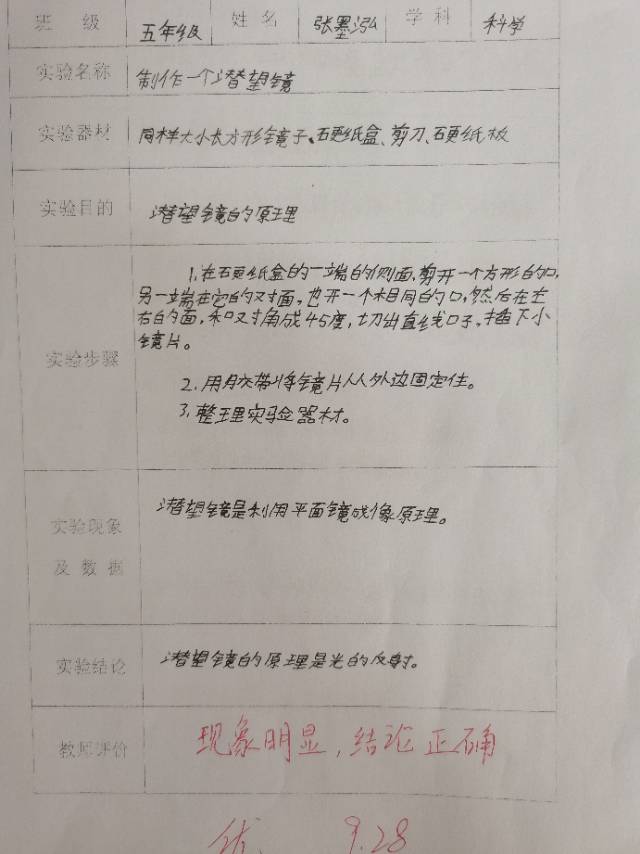 班 级 五年级 姓 名 张墨泓 学 科 科学
实验名称 制作一个潜望镜
实验器材 同样大小长方形镜子、硬纸盒、剪刀、硬纸板
实验目的 潜望镜的原理
实验步骤
1.在硬纸盒的一端的侧面,剪开一个方形的口,
另一端在它的对面,也开一个相同的口,然后在左
右的面,和对角成45度,切出直线口子,插下小
镜片。
2.用胶带将镜片从外边固定住。
3.整理实验器材。
实验现象
及 数 据
潜望镜是利用平面镜成像原理。
实验结论 潜望镜的原理是光的反射。
教师评价 现象明显,结论正确
优 9.28